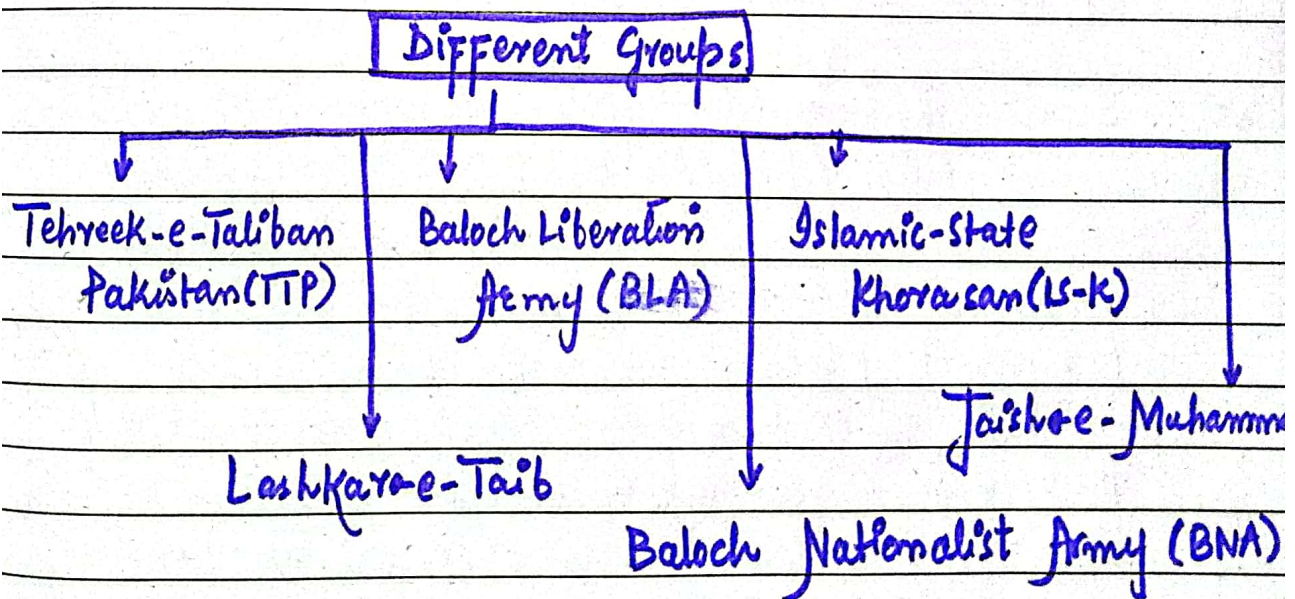 Different Groups
Tehreek-e-Taliban
Pakistan (TTP)
Baloch Liberation
Army (BLA)
Islamic-State
Khorasan (IS-K)
Jaish-e-Muhamm
Lashkar-e-Taib
Baloch Nationalist Army (BNA)